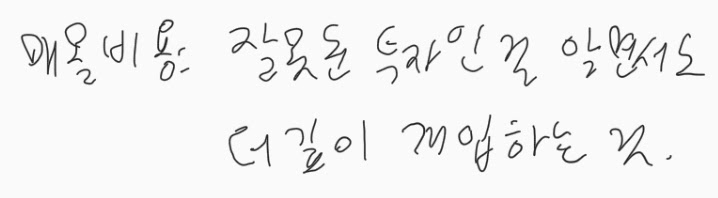 매몰비용: 잘못된 투자인 걸 알면서도
더 깊이 개입하는 것.